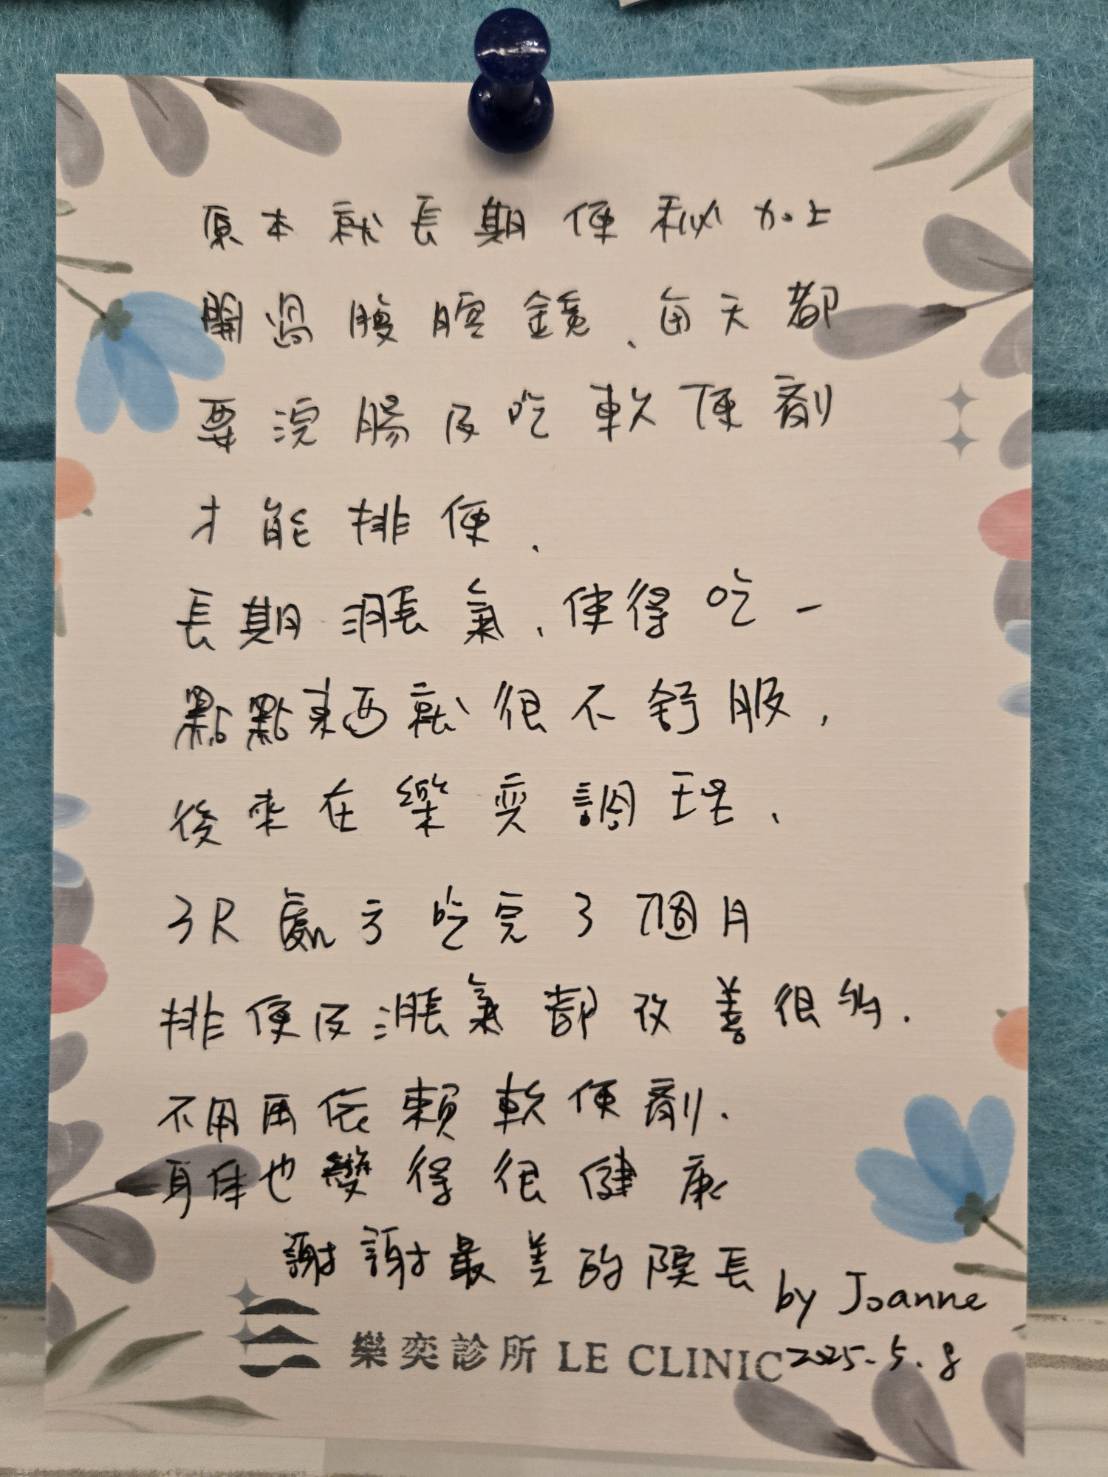 原本就長期便秘加上
開過腹腔鏡、每天都
要浣腸及吃軟便劑
才能排便、
長期漲氣、使得吃一
點點東西就很不舒服,
後來在樂奕調理、
3R處方吃完3個月
排便及漲氣都改善很多.
不用再依賴軟便劑.
身体也變得很健康
謝謝最美的院長 by Joanne
樂奕診所 LE CLINIC 2025.5.8